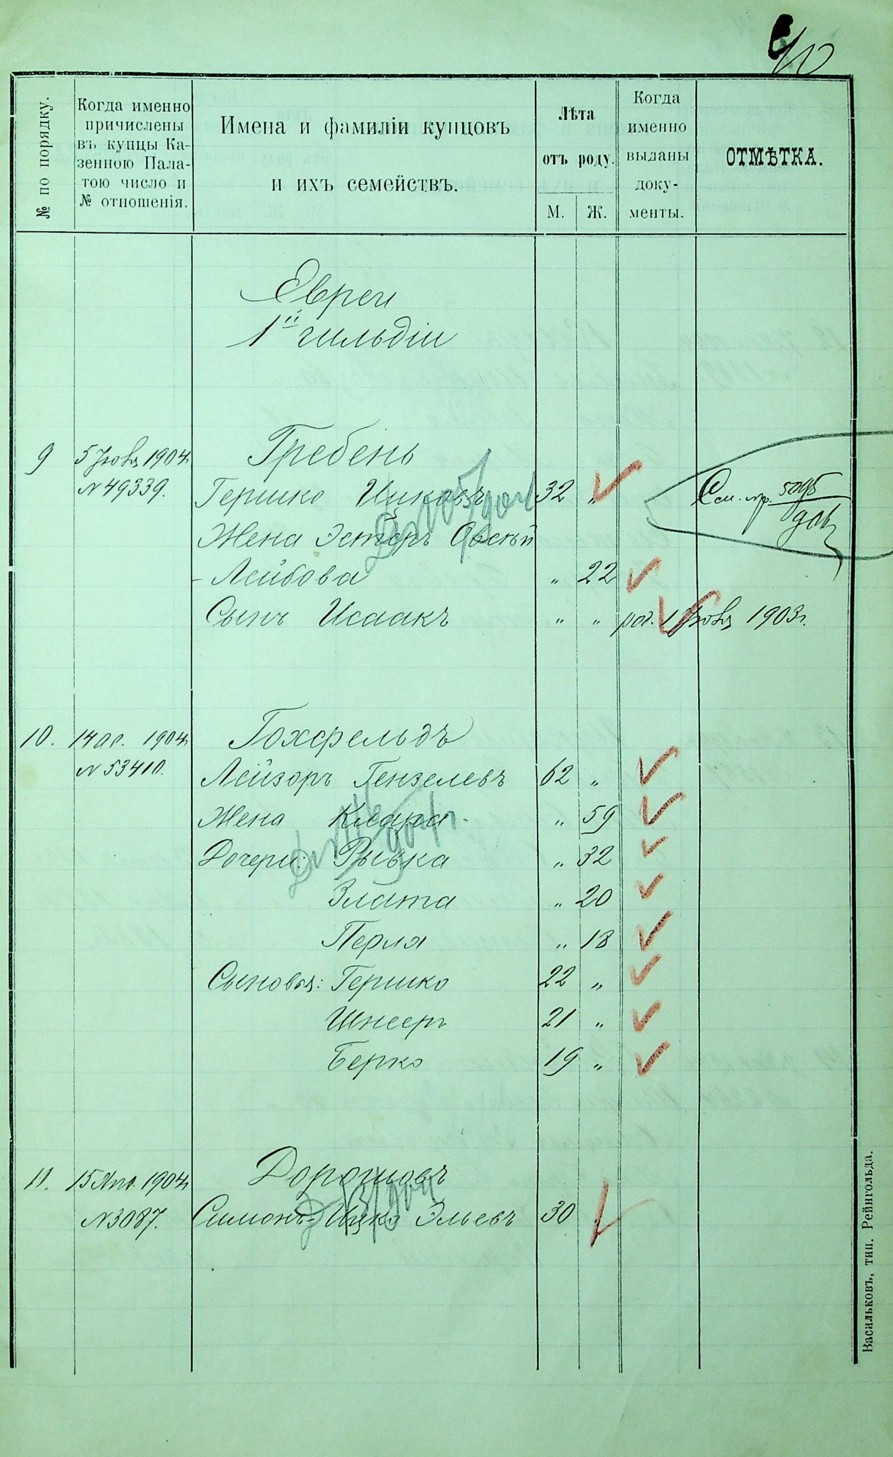 10
№ по порядку.
Когда именно
причислены
въ купцы Ка-
зенною Пала-
тою число и
№ отношенія.
Имена и фамиліи купцовъ
и ихъ семействъ.
Лѣта
отъ роду.
М. Ж.
Когда
именно
выданы
доку-
менты.
ОТМѢТКА.
Евреи
1й гильдіи
9 1904 Гребень
№ 49339. Гершко Ицковъ 32 „ См. пр.
Жена Эстеръ
Лейбова „ 22
Сынъ Исаакъ „ „ 1903г.
10. 1904 Гохфельдъ
№ 53410. Лейзоръ Гензелевъ 62 „
Жена „ 59
Дочери: Рывка „ 32
Злата „ 20
Перля „ 18
Сыновья: Гершко 22 „
Шнеер 21 „
Берко 19 „
11. 15 Янв. 1904
№ 3087. Симонъ-Ицко Эльевъ 30 „
Васильковъ, тип. Рейнгольда.